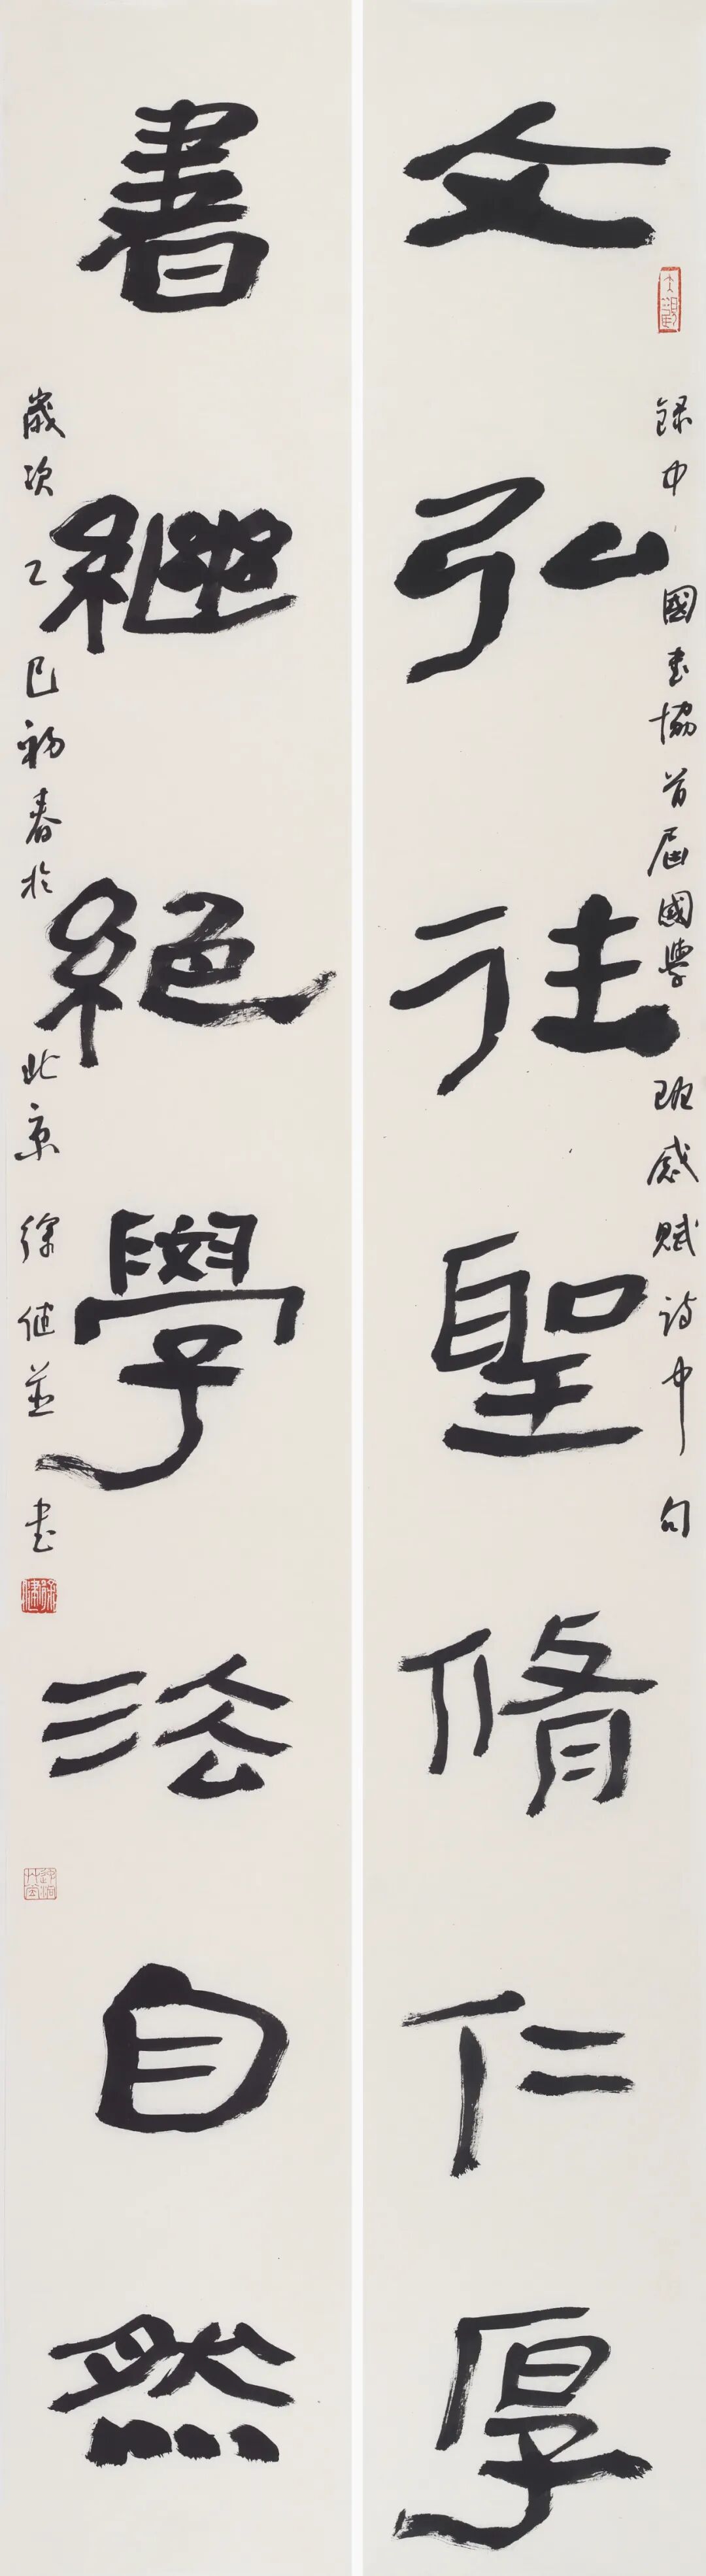 文弘往聖脩仁厚
錄中國書協首屆國學班感賦詩中句
書繼絕學法自然
歲次乙巳初春於北京徐健並書